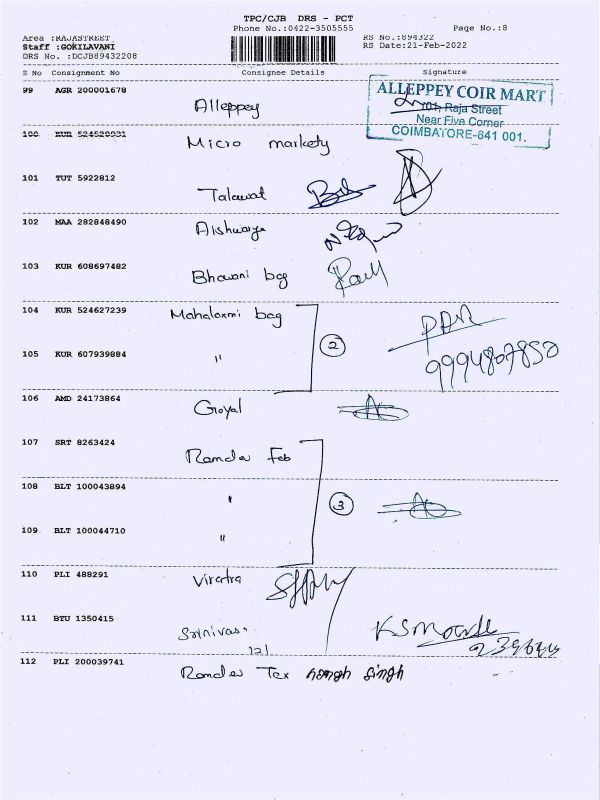 TPC/CJB DRS - PCT
Phone No.:0422-3505555 Page No.:8
Area :RAJASTREET RS No.:894322
Staff :GOKILAVANI RS Date:21-Feb-2022
DRS No. :DCJB89432208
S No Consignment No Consignee Details Signature
99 AGR 200001678 Alleppey
ALLEPPEY COIR MART
701, Raja Street
Near Five Corner
COIMBATORE-641 001.
100 KUR 524520931 Micro markety
101 TUT 5922812 Talawat
102 MAA 282848490 Aishwarya
103 KUR 608697482 Bhavani bag
104 KUR 524627239 Mahalaxmi bag
2
9994807850
105 KUR 607939884 "
106 AMD 24173864 Goyal
107 SRT 8263424 Ramdev Feb
108 BLT 100043894 "
3
109 BLT 100044710 "
110 PLI 488291
111 BTU 1350415 Srinivas.
121
112 PLI 200039741 Ramdev Tex singh